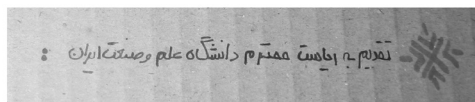 تقدیم به ریاست محترم دانشگاه علم و صنعت ایران :